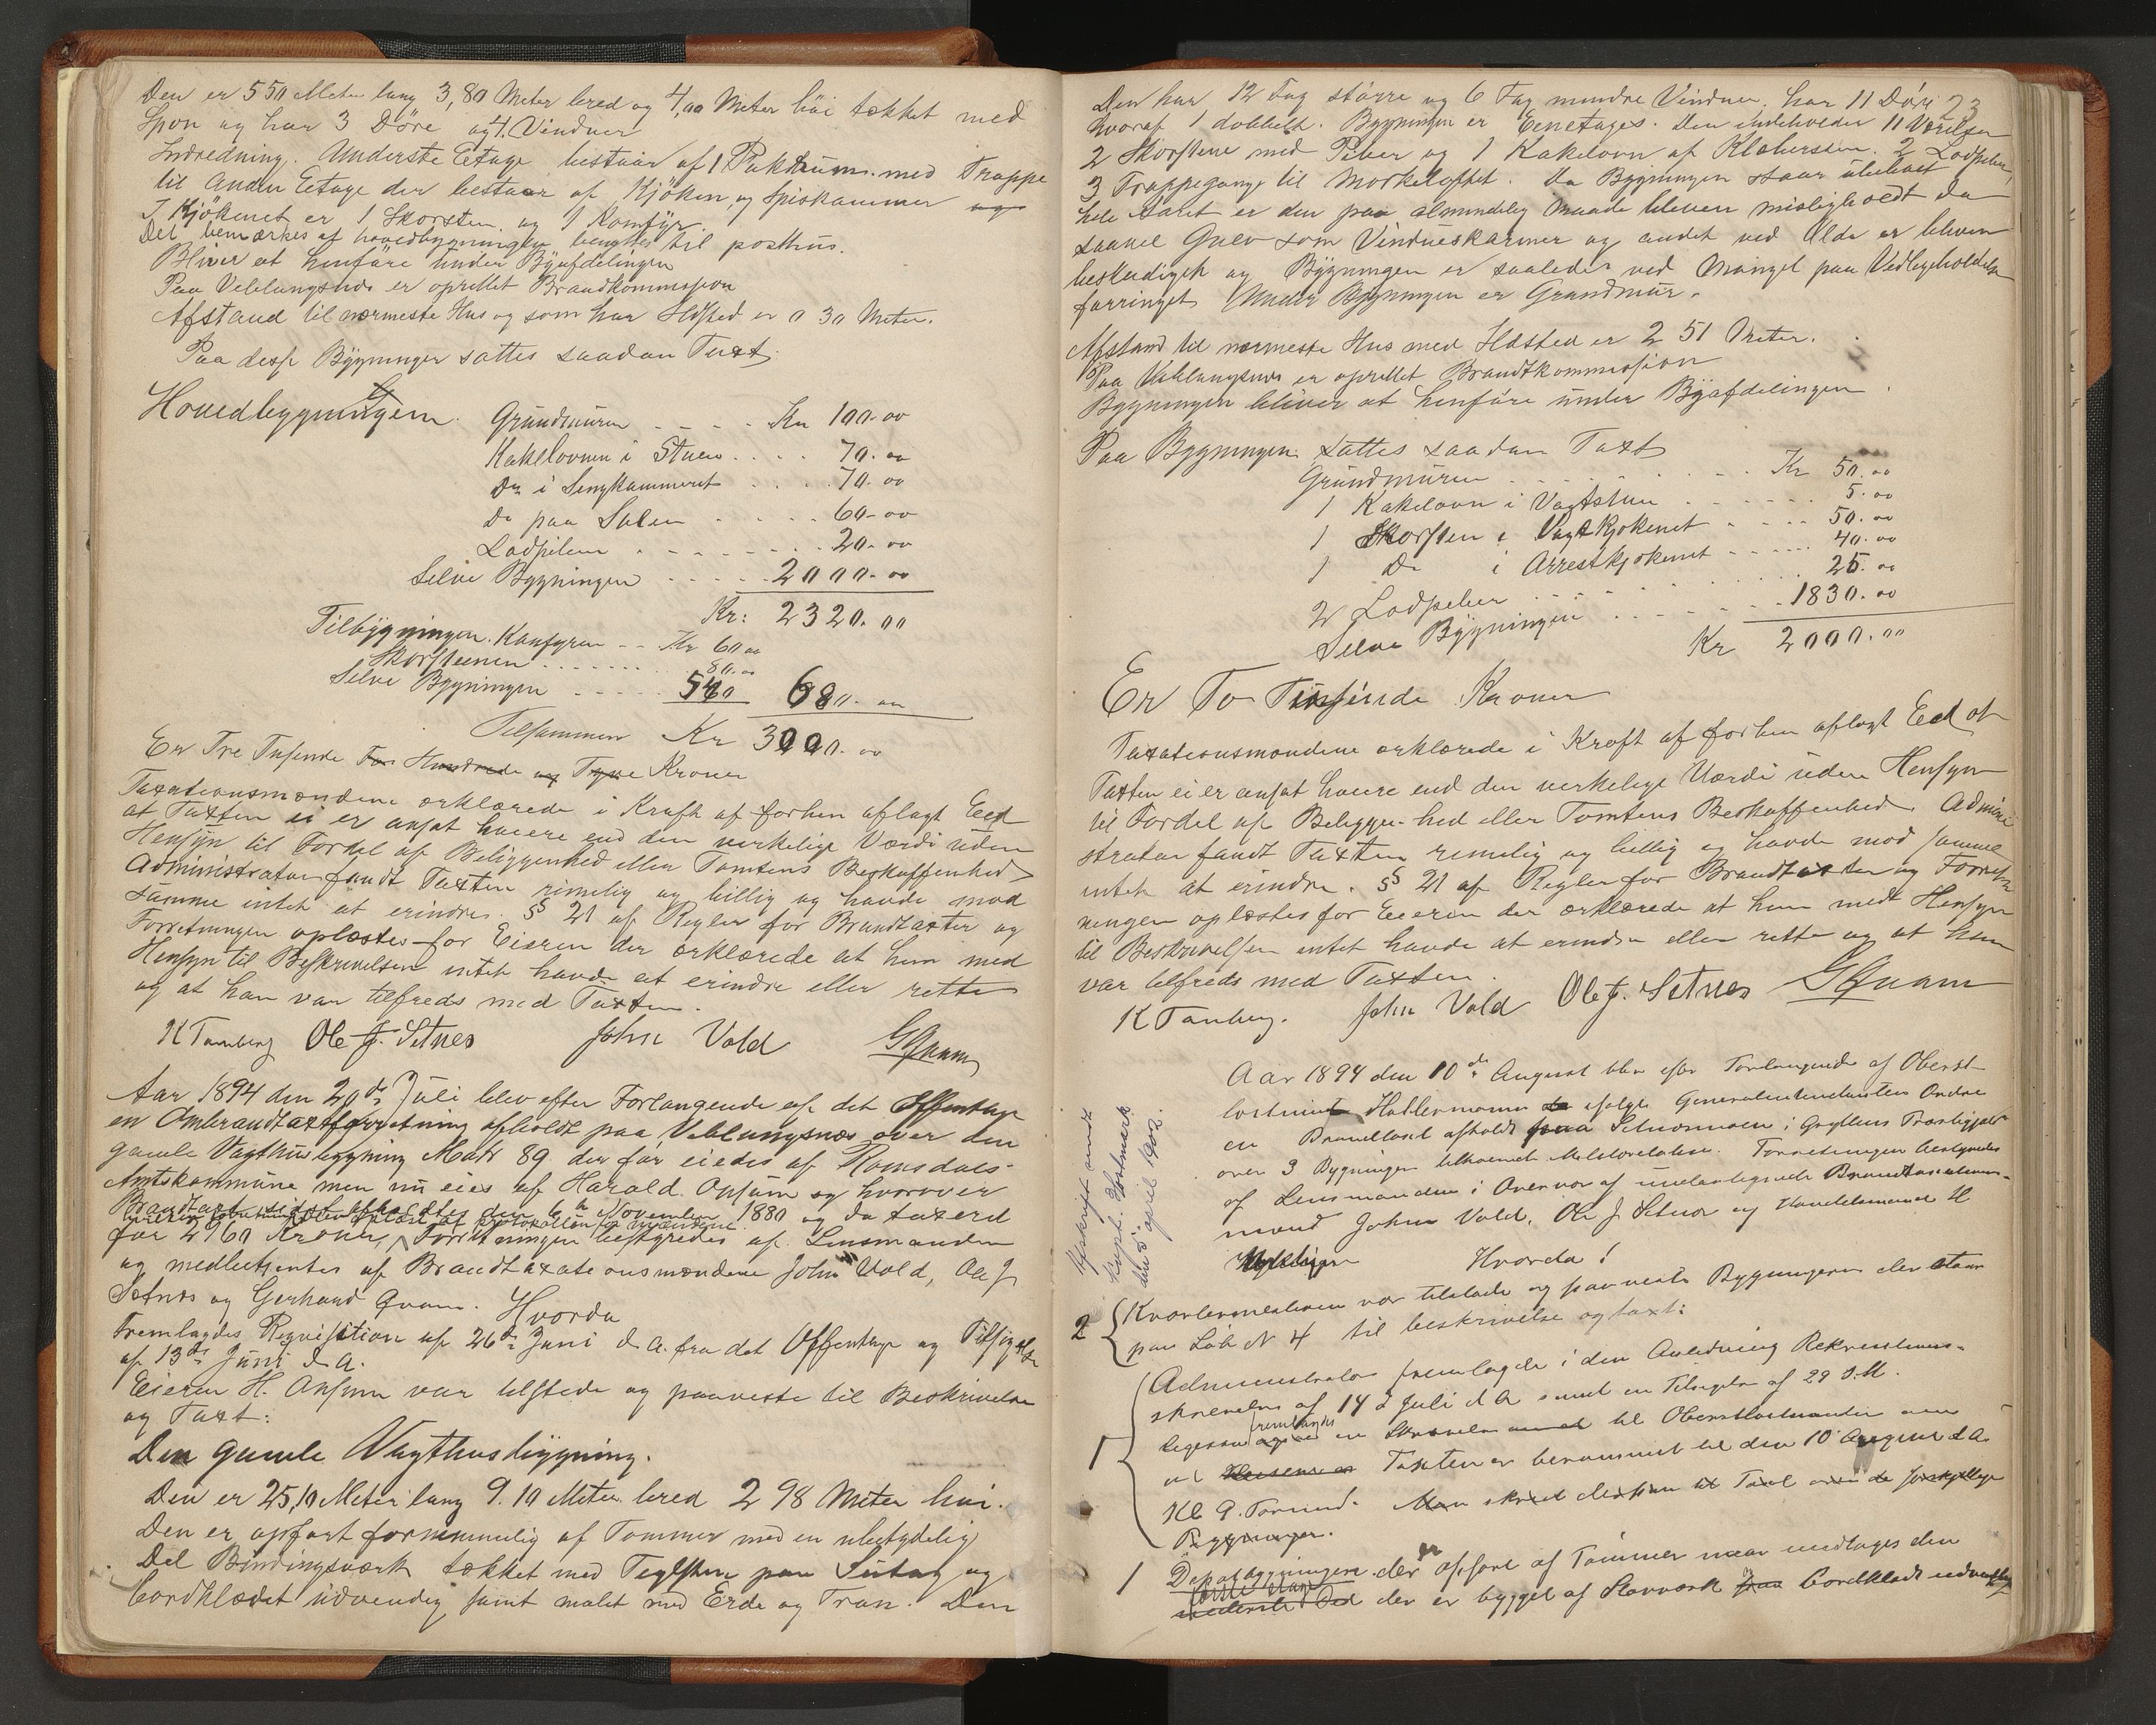 Den er 550 Meter lang 3,80 Meter bred og 4,00 Meter høi tækket med
Spon og har 3 Døre og 4 Vinduer
Indredning. Underste Etage bestaar af 1 Pakkrum med Trappe
til Anden Etage der bestaar af Kjøken og Spiskammer
I Kjøkenet er 1 Skorsten og 1 Komfyr
Det bemærkes at hovedbygningen benyttes til posthus.
Bliver at henføre under Byafdelingen
Paa Veblungsnes er oprettet Brandkommission
Afstand til nærmeste Hus og som har Ildsted er 0 30 Meter.
Paa disse Bygninger sattes saadan Taxt
Hovedbygningen. Grundmuren Kr 100.00
Kakelovnen i Stuen 70.00
Do i Sengkammeret 70.00
Do paa Salen 60.00
Lodpiben 20.00
Selve Bygningen 2000.00
Kr: 2320.00
Tilbygningen. Komfyren Kr 60.00
Skorstenen 80.00
Selve Bygningen 540 680.00
Tilsammen Kr 3000.00
Er Tre Tusende Hundrede og Tyve Kroner
Taxationsmændene erklærede i Kraft af forhen aflagt Eed
at Taxten ei er ansat høiere end den verkelige Værdi uden
Hensyn til Fordel af Beliggenhed eller Tomtens Beskaffenhed
Administrator fandt Taxten rimelig og billig og havde mod
samme intet at erindre. § 21 af Regler for Brandtaxter og
Forretningen oplæstes for Eieren der erklærede at han med
Hensyn til Beskrivelsen intet havde at erindre eller rette
og at han var tilfreds med Taxten.
K Tanberg Ole J. Setnes John Vold GQvam
Aar 1894 den 20de Juli blev efter Forlangende af det Offentlige
en Ombrandtaxtforretning afholdt paa Veblungsnes over den
gamle Vagthusbygning Matr 89 der før eiedes af Romsdals
Amtskommune men nu eies af Harald Opsum og hvorover
Brandtaxt sidst afholdtes den 6te November 1880 og da taxerd
for 2960 Kroner, Forretningen bestyredes af Lensmanden
og medbetjentes af Brandtaxationsmændene John Vold, Ole J
Setnes og Gerhard Qvam. Hvorda
Fremlagdes Requisition af 26de Juni d. A. fra det Offentlige og Tilsigelse
af 13de Juni d. A.
Eieren H. Opsum var tilstede og paaviste til Beskrivelse
og Taxt:
Den gamle Vagthusbygning.
Den er 25,10 Meter lang 9.10 Meter bred 2 98 Meter høi.
Den er opført fornemmelig af Tømmer med en ubetydelig
Del Bindingsværk tækket med Teglsten paa Sutag og
bordklædet udvendig samt malet med Erde og Tran. Den
Den har 12 Fag større og 6 Fag mindre Vinduer, har 11 Døre 23
hvoraf 1 dobbelt. Bygningen er Eenetages. Den indeholder 11 Værelser
2 Skorstene med Piber og 1 Kakelovn af Klæbersten. 2 Lodpiber,
3 Trappegange til Mørkeloftet. Da Bygningen staar ubeboet
hele Aaret er den paa almindelig Maade bleven misligholdt da
saavel Gulv som Vindueskarmer og andet ved Ælde er bleven
beskadiget og Bygningen er saaledes ved Mangel paa Vedligeholdelse
forringet. Under Bygningen er Grundmur.
Afstand til nærmeste Hus med Ildsted er 2 51 Meter.
Paa Veblungsnes er oprettet Brandtkommission
Bygningen bliver at henføre under Byafdelingen
Paa Bygningen sattes saadan Taxt
Grundmuren Kr 50.00
1 Kakelovn i Vagtstuen 5.00
1 Skorsten i Vagtkjøkenet 50.00
1 Do i Arrestkjøkenet 40.00
2 Lodpiber 25.00
Selve Bygningen 1830.00
Kr 2000.00
Er To Tusinde Kroner
Taxationsmændene erklærede i Kraft af forhen aflagt Eed at
Taxten ei er ansat høiere end den verkelige Værdi uden Hensyn
til Fordel af Beliggenhed eller Tomtens Beskaffenhed. Admini
strator fandt Taxten rimelig og billig og havde mod samme
intet at erindre. § 21 af Regler for Brandtaxter og Forret
ningen oplæstes for Eieren der erklærede at han med Hensyn
til Beskrivelsen intet havde at erindre eller rette og at han
var tilfreds med Taxten.
K Tanberg. John Vold Ole J. Setnes GQvam
Aar 1894 den 10de August blev efter Forlangende af Oberst
løitnant ifølge Generalintendantens Ordre
en Brandtaxt afholdt paa Setnesmoen i Gryttens Præstegjæld
over 3 Bygninger tilhørende Forretningen bestyredes
af Lensmanden i Overvær af undertegnede Brandtaxations-
mænd John Vold, Ole J Setnes og Handelsmand H
Hvorda!
Afskrift sendt
Kapt. Holmark
den 5 april 1902.
2 Kvartermesteren var tilstede og paaviste Bygningerne der staar
paa Løb N 4 til beskrivelse og taxt:
1 Administrator fremlagde i den Anledning Rekvisitions-
skrivelse af 14 d Juli d A samt en Tilsigelse af 29 d. M.
ligesaa fremlagdes en Skrivelse til Oberstløitnanten om
at Taxten er berammet til den 10 August d A
Kl 9. Formid.
Bygninger.
1 Depotbygningen der er opført af Tømmer naar undtages den
første Etage der er bygget af Stavværk bordklædt udvendig